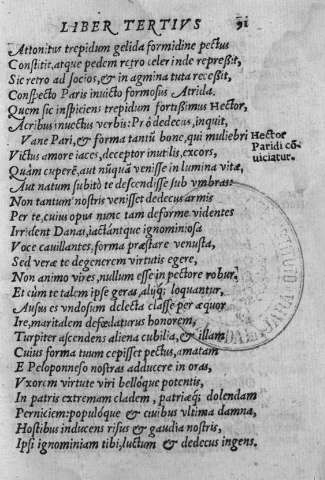 LIBER TERTIVS 91
Attonitus trepidum gelida formidine pectus
Constitit, atque pedem retro celer inde repreßit,
Sic retro ad socios, & in agmina tuta receßit,
Conspecto Paris inuicto formosus Atrida.
Quem sic inspiciens trepidum fortißimus Hector,
Acribus inuectus verbis: Prò dedecus, inquit,
Vane Pari, & forma tantũ bone, qui muliebri
Hector
Paridi cõ
uiciatur.
Victus amore iaces, deceptor inutilis, excors,
Quàm cuperē, aut nũquã venisse in lumina vitæ,
Aut natum subitò te descendisse sub vmbras:
Non tantum nostris venisset dedecus armis
Per te, cuius opus nunc tam deforme videntes
Irrident Danai, iactántque ignominiosa
Voce cauillantes, forma præstare venusta,
Sed veræ te degenerem virtutis egere,
Non animo vires, nullum esse in pectore robur.
Et cùm te talem ipse geras, alijq; loquantur,
Ausus es vndosum delecta classe per æquor
Ire, maritalem defœdaturus honorem,
Turpiter ascendens aliena cubilia, & illam
Cuius forma tuum cepisset pectus, amatam
E Peloponneso nostras adducere in oras,
Vxorem virtute viri bellóque potentis,
In patris extremam cladem, patriæq; dolendam
Perniciem: populóque & ciuibus vltima damna,
Hostibus inducens risus & gaudia nostris,
Ipsi ignominiam tibi, luctum & dedecus ingens.